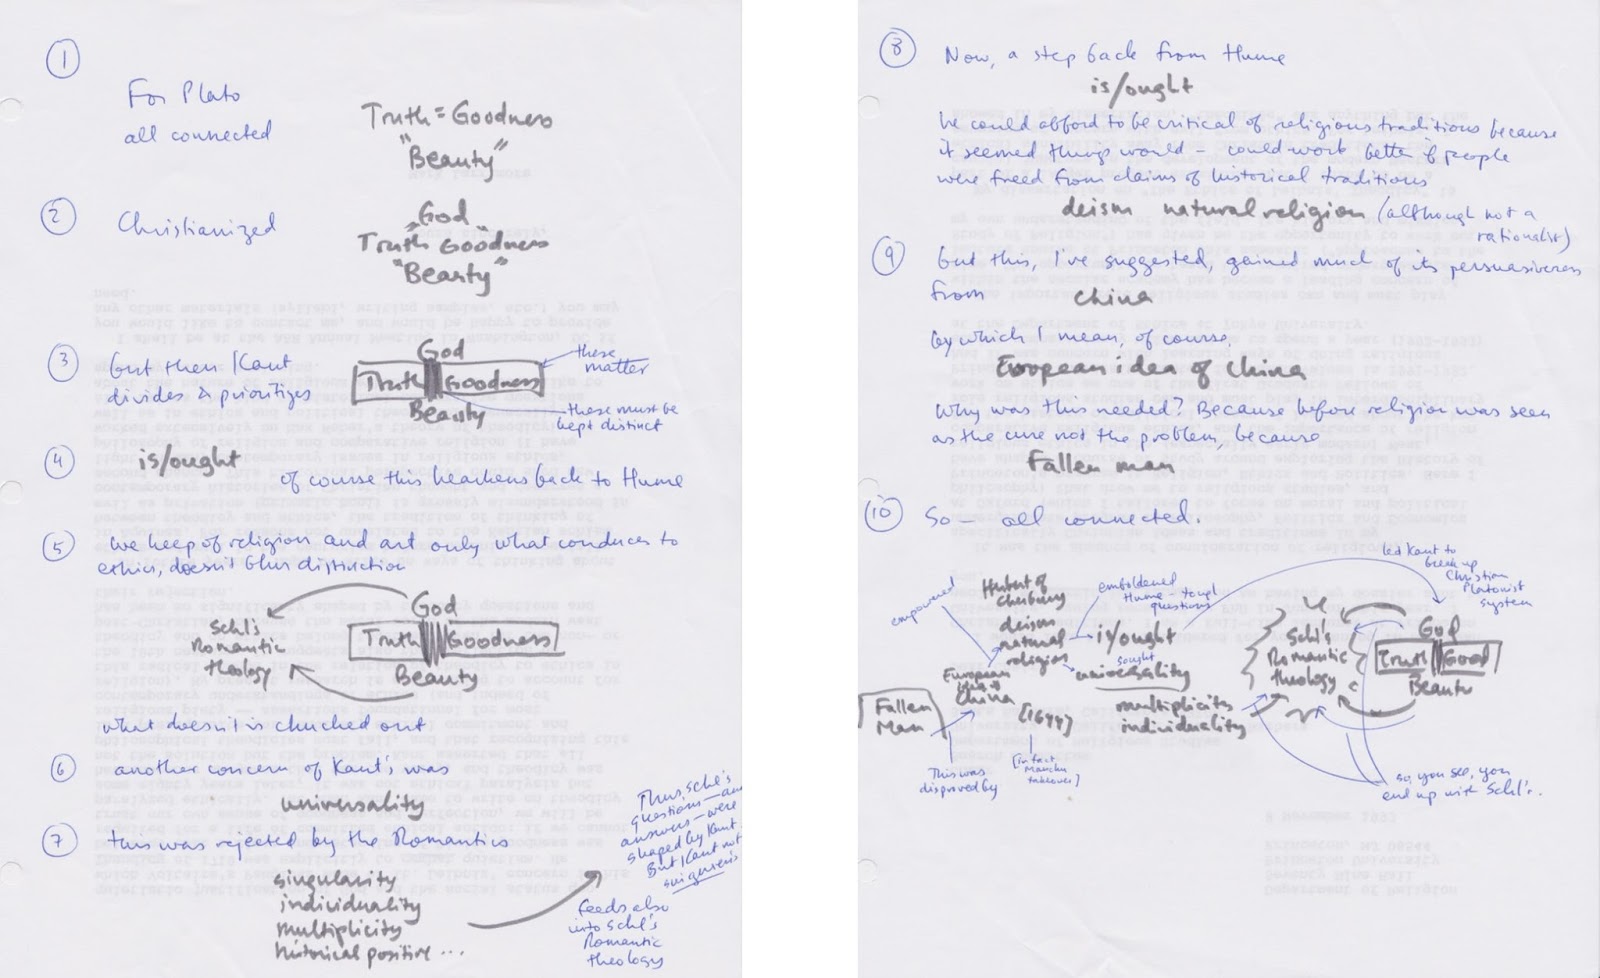 1
For Plato
all connected
Truth = Goodness
"Beauty"
2
Christianized
God
Truth Goodness
"Beauty"
3
but then Kant
divides & prioritizes
God
Truth Goodness
Beauty
these
matter
these must be
kept distinct
4
is/ought
of course this hearkens back to Hume
5
we keep of religion and art only what conduces to
ethics, doesn't blur distinction
God
Truth Goodness
Beauty
Schl's
Romantic
theology
what doesn't is chucked out
6
another concern of Kant's was
universality
7
this was rejected by the Romantics
singularity
individuality
multiplicity
historical positive ...
Thus, Schl's
questions — and
answers — were
shaped by Kant
But Kant not
sui generis
feeds also
into Schl's
Romantic
theology
8
Now, a step back from Hume
is/ought
he could afford to be critical of religious traditions because
it seemed things would – could work better if people
were freed from claims of historical traditions
deism natural religion (although not a
rationalist)
9
but this, I've suggested, gained much of its persuasiveness
from
China
by which I mean, of course,
European idea of China
Why was this needed? Because before religion was seen
as the cure not the problem, because
Fallen man
10
So — all connected.
empowered
Herbert of
Cherbury
deism
natural
religion
emboldened
Hume – tough
questions
is/ought
sought
universality
multiplicity
individuality
led Kant to
break up
Christian
Platonist
system
Schl's
Romantic
theology
God
Truth Good
Beauty
Fallen
Man
European
idea of
China
[1644]
[in fact
Manchu
takeover]
This was
disproved by
so, you see, you
end up with Schl's.